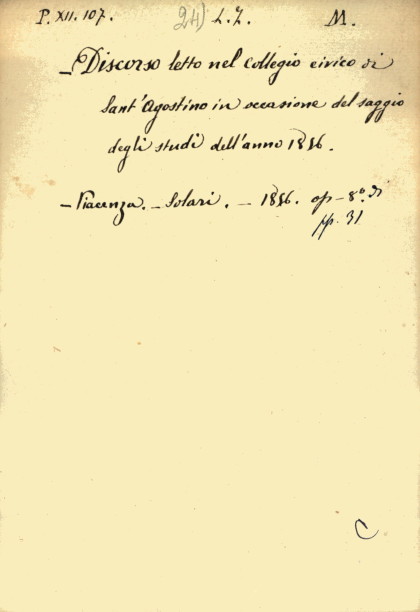 P. XII. 107. 24) L. Z. M.
– Discorso letto nel Collegio civico di
Sant'Agostino in occasione del saggio
degli studi dell'anno 1816.
– Piacenza. – Solari. – 1816. op – 8.° di
pp. 31
C